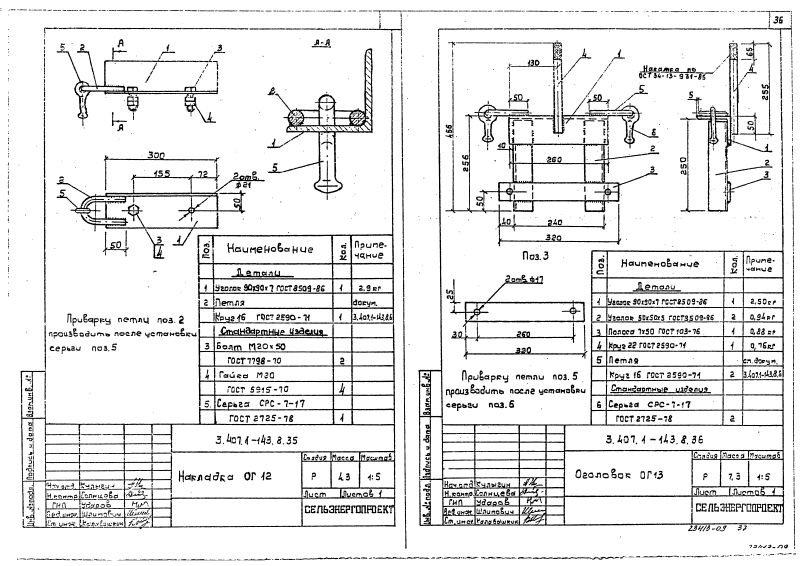 36
А-А
А
А
5
2
1
3
4
2
1
5
300
155
72
2отв.
ф21
50
2
5
50
3
4
1
Приварку петли поз. 2
производить после установки
серьги поз.5
Поз. Наименование Кол. Примечание
Детали
1 Уголок 90х90х7 ГОСТ 8509-86 1 2.9кг
2 Петля докум.
Круг 16 ГОСТ 2590-71 1 3.407.1-143.8.6
Стандартные изделия
3 Болт М20х50
ГОСТ 7798-70 2
4 Гайка М20
ГОСТ 5915-70 4
5 Серьга СРС-7-17
ГОСТ 2725-78 1
3.407.1-143.8.35
Накладка ОГ 12
Стадия Масса Масштаб
Р 4,3 1:5
Лист Листов 1
СЕЛЬЭНЕРГОПРОЕКТ
Нач.отд. Кулыгин
Н.контр. Солнцева
ГИП Ударов
Вед.инж. Шлипович
Ст.инж.
Инв.№подл. Подпись и дата Взам.инв.№
130
50
50
4
1
5
6
466
256
10
260
2
3
50
40
240
320
Накатка по
ОСТ 34-13-931-85
65
4
255
5
50
250
1
2
3
Поз.3
2отв.ф17
25
30
260
320
Приварку петли поз. 5
производить после установки
серьги поз.6
Поз. Наименование Кол. Примечание
Детали
1 Уголок 90х90х7 ГОСТ 8509-86 1 2.50кг
2 Уголок 50х50х5 ГОСТ 8509-86 2 0,94кг
3 Полоса 7х50 ГОСТ 103-76 1 0,88кг
4 Круг 22 ГОСТ 2590-71 1 0,76кг
5 Петля см.докум.
Круг 16 ГОСТ 2590-71 2 3.407.1-143.8.6
Стандартные изделия
6 Серьга СРС-7-17
ГОСТ 2725-78 2
3.407.1-143.8.36
Оголовок ОГ13
Стадия Масса Масштаб
Р 7,3 1:5
Лист Листов 1
СЕЛЬЭНЕРГОПРОЕКТ
Нач.отд. Кулыгин
Н.контр. Солнцева
ГИП Ударов
Вед.инж. Шлипович
Ст.инж.
Инв.№подл. Подпись и дата Взам.инв.№